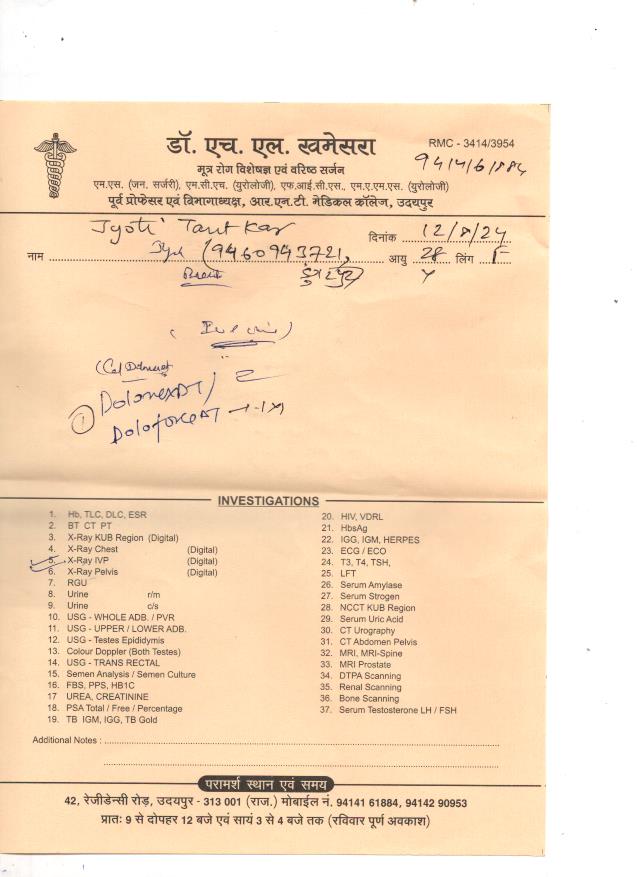 डॉ. एच. एल. खमेसरा
RMC - 3414/3954
मूत्र रोग विशेषज्ञ एवं वरिष्ठ सर्जन
एम.एस. (जन. सर्जरी), एम.सी.एच. (युरोलोजी), एफ.आई.सी.एस., एम.ए.एम.एस. (युरोलोजी)
पूर्व प्रोफेसर एवं विभागाध्यक्ष, आर.एन.टी. मेडिकल कॉलेज, उदयपुर
Jyoti
दिनांक 12/8/24
नाम (9460943721, आयु 28 लिंग F
डुंगरपुर Y
① Dolonex DT
Doloforce DT
INVESTIGATIONS
1. Hb, TLC, DLC, ESR
2. BT CT PT
3. X-Ray KUB Region (Digital)
4. X-Ray Chest (Digital)
5. X-Ray IVP (Digital)
6. X-Ray Pelvis (Digital)
7. RGU
8. Urine r/m
9. Urine c/s
10. USG - WHOLE ADB. / PVR
11. USG - UPPER / LOWER ADB.
12. USG - Testes Epididymis
13. Colour Doppler (Both Testes)
14. USG - TRANS RECTAL
15. Semen Analysis / Semen Culture
16. FBS, PPS, HB1C
17 UREA, CREATININE
18. PSA Total / Free / Percentage
19. TB IGM, IGG, TB Gold
20. HIV, VDRL
21. HbsAg
22. IGG, IGM, HERPES
23. ECG / ECO
24. T3, T4, TSH,
25. LFT
26. Serum Amylase
27. Serum Strogen
28. NCCT KUB Region
29. Serum Uric Acid
30. CT Urography
31. CT Abdomen Pelvis
32. MRI, MRI-Spine
33. MRI Prostate
34. DTPA Scanning
35. Renal Scanning
36. Bone Scanning
37. Serum Testosterone LH / FSH
Additional Notes :
परामर्श स्थान एवं समय
42, रेजीडेन्सी रोड़, उदयपुर - 313 001 (राज.) मोबाईल नं. 94141 61884, 94142 90953
प्रातः 9 से दोपहर 12 बजे एवं सायं 3 से 4 बजे तक (रविवार पूर्ण अवकाश)